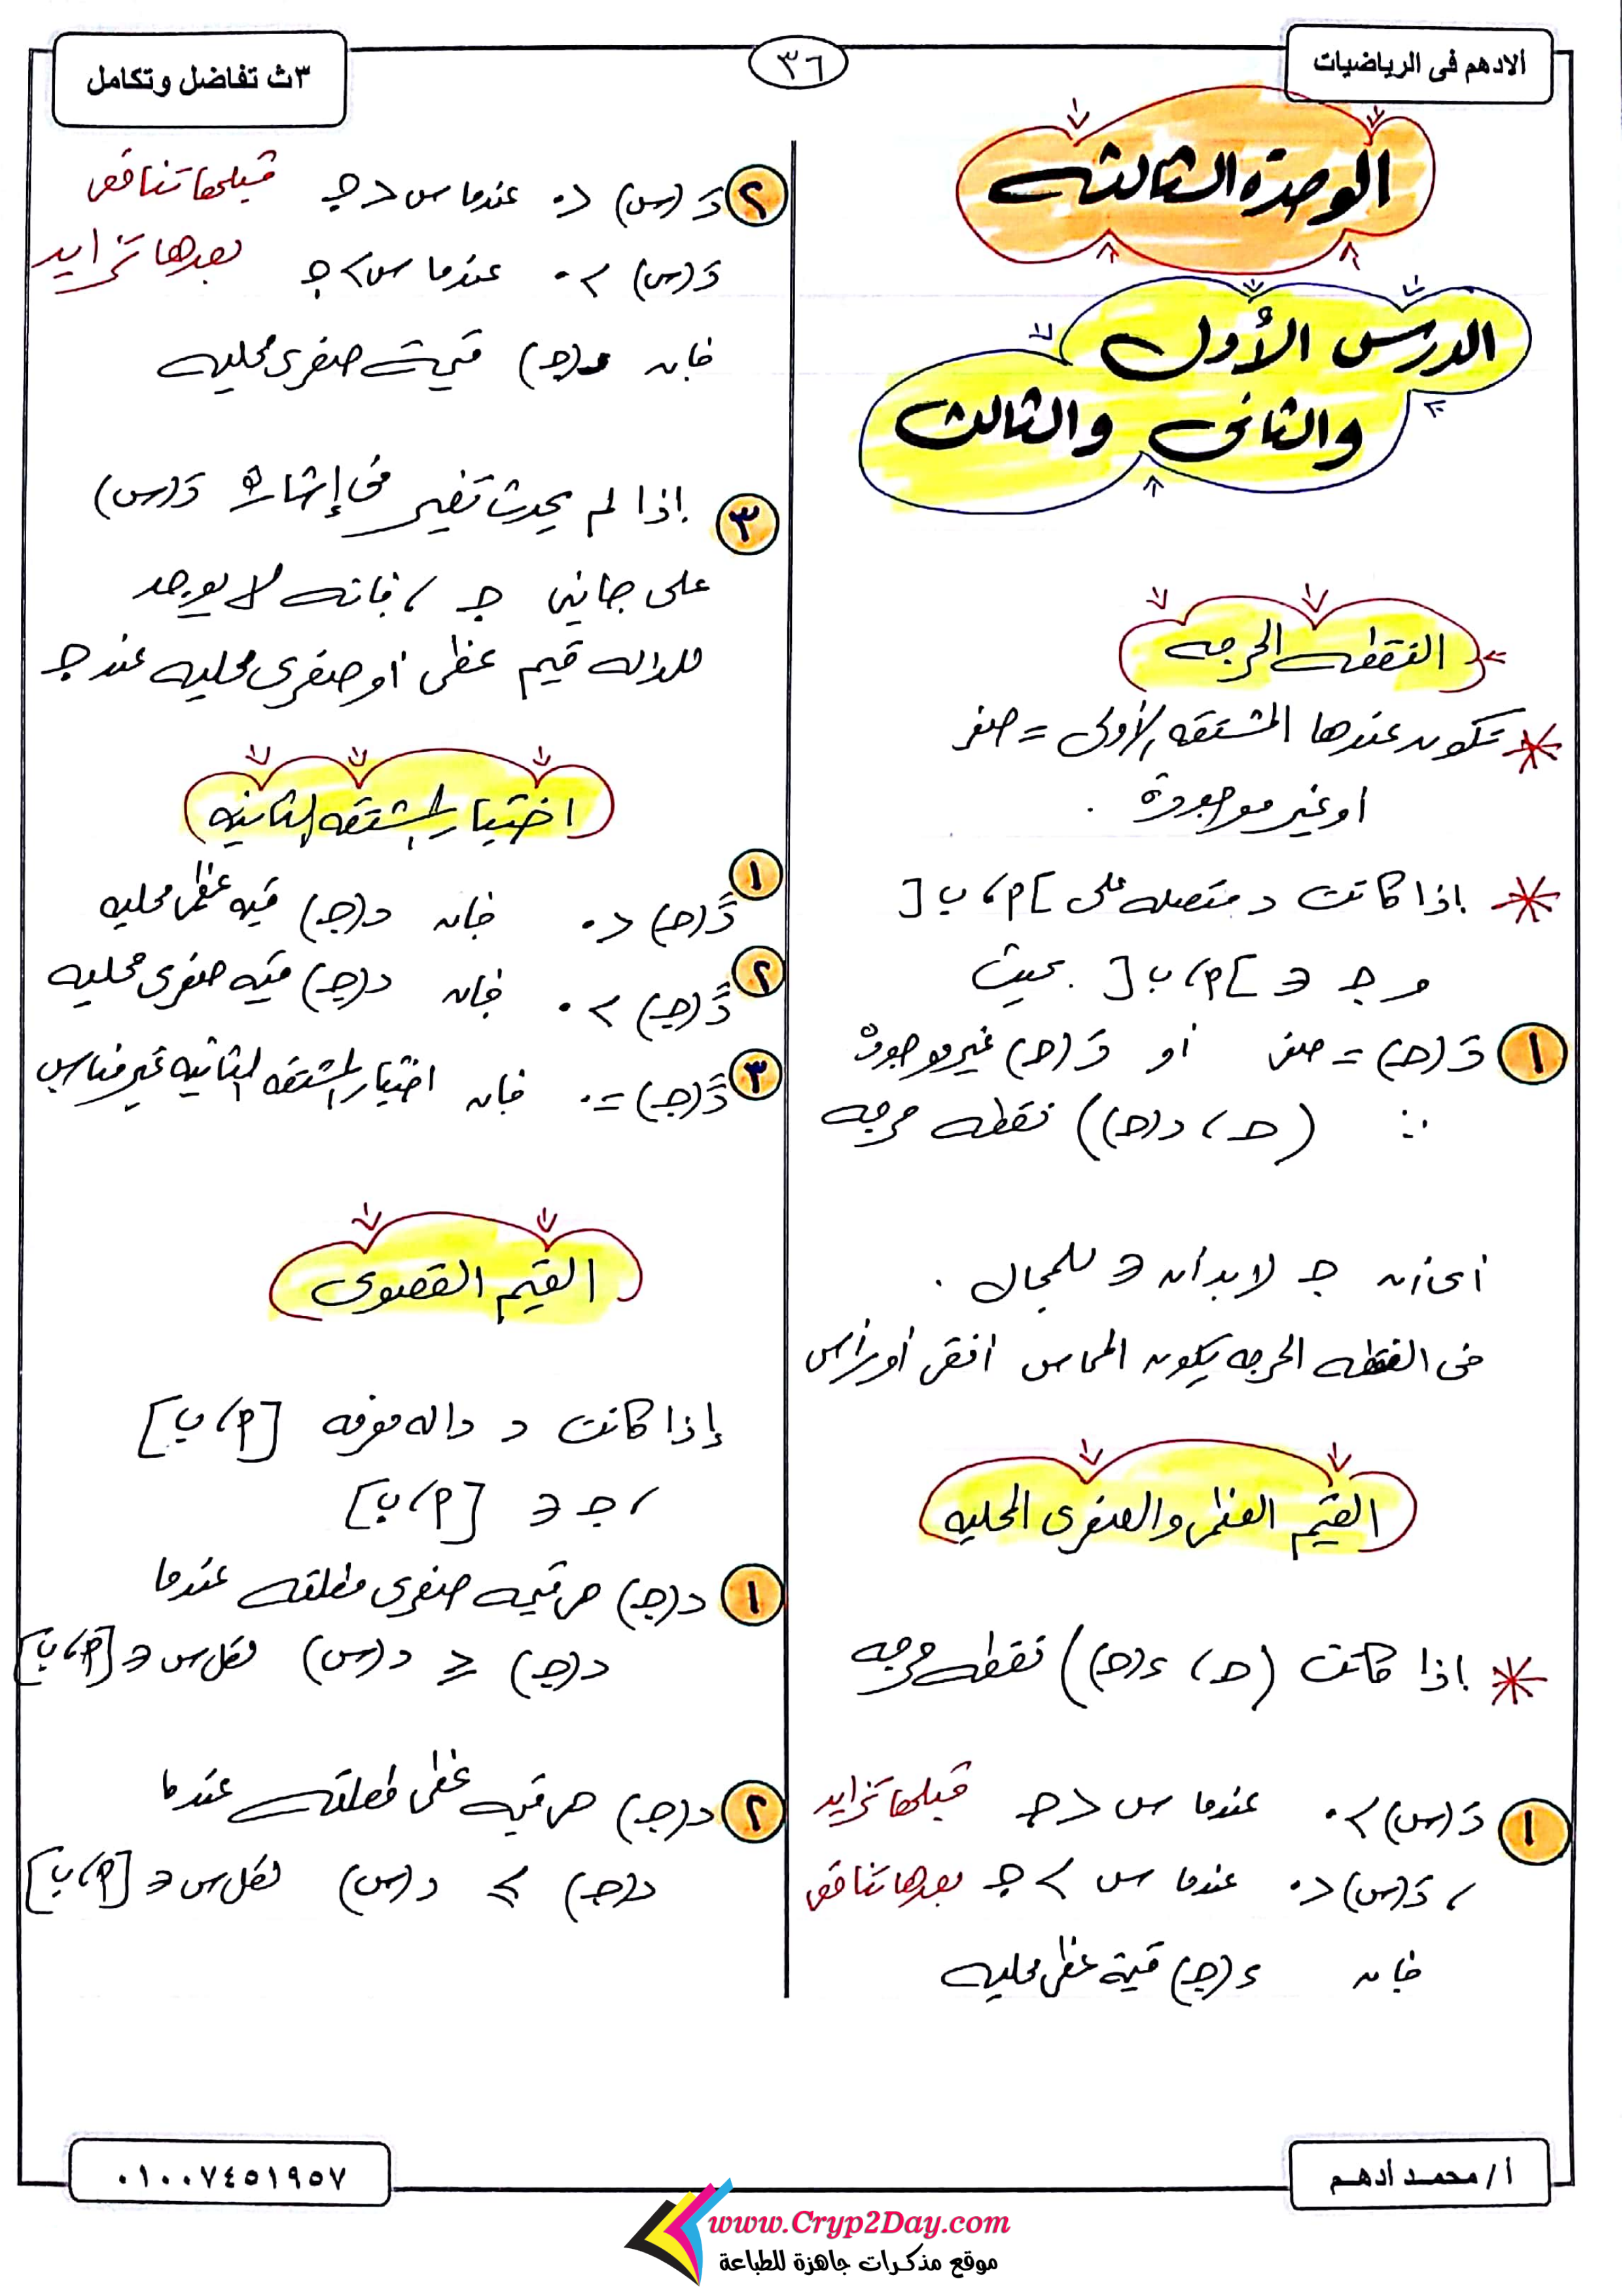 الادهم فى الرياضيات
٣٦
٣ث تفاضل وتكامل
الوحدة الثالثه
الدرس الأول
والثانى والثالث
النقطه الحرجه
* تكون عندها المشتقه الأولى = صفر
او غير موجودة .
* إذا كانت د متصله على ]أ ، ب[
و جـ ∈ ]أ ، ب[ بحيث
١ دَ(جـ) = صفر أو دَ(جـ) غير موجودة
∴ (جـ ، د(جـ)) نقطه حرجه
أى أن جـ لابد أن ∈ للمجال .
فى النقطه الحرجه يكون المماس افقى أو رأسى
القيم العظمى والصغرى المحليه
* إذا كانت (جـ ، د(جـ)) نقطه حرجه
١ دَ(س) > ٠ عندما س < جـ قبلها تزايد
، دَ(س) < ٠ عندما س > جـ بعدها تناقص
فإن د(جـ) قيمة عظمى محليه
٢ دَ(س) < ٠ عندما س < جـ قبلها تناقص
دَ(س) > ٠ عندما س > جـ بعدها تزايد
فإن د(جـ) قيمة صغرى محليه
٣ إذا لم يحدث تغير فى إشارة دَ(س)
على جانبى جـ ، فإنه لا يوجد
للداله قيم عظمى أو صغرى محليه عند جـ
اختبار المشتقه الثانيه
١ دً(جـ) < ٠ فإن د(جـ) قيمه عظمى محليه
٢ دً(جـ) > ٠ فإن د(جـ) قيمه صغرى محليه
٣ دً(جـ) = ٠ فإن اختبار المشتقه الثانيه غير مناسب
القيم القصوى
إذا كانت د داله معرفه [أ ، ب]
، جـ ∈ [أ ، ب]
١ د(جـ) هى قيمه صغرى مطلقه عندما
د(جـ) ≤ د(س) لكل س ∈ [أ ، ب]
٢ د(جـ) هى قيمه عظمى مطلقه عندما
د(جـ) ≥ د(س) لكل س ∈ [أ ، ب]
أ / محمد أدهم
٠١٠٠٧٤٥١٩٥٧
www.Cryp2Day.com
موقع مذكرات جاهزة للطباعة